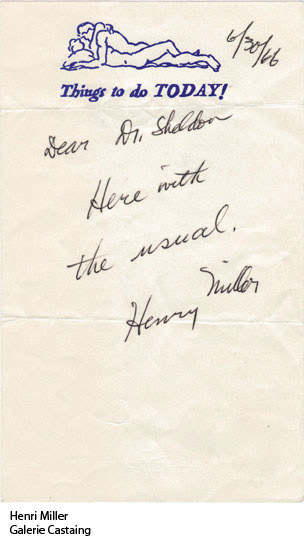 6/30/66
Things to do TODAY!
Dear Dr. Sheldon
Here with
the usual.
Henry Miller
Henri Miller
Galerie Castaing